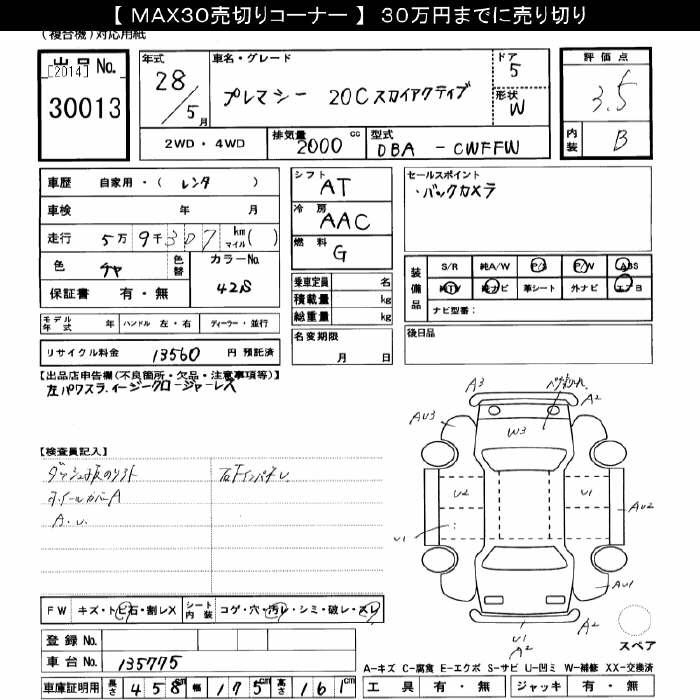 【 MAX30売切りコーナー 】 30万円までに売り切り
(複合機)対応用紙
出品 No.
[2014]
30013
年式
28/5月
車名・グレード
プレマシー 20Cスカイアクティブ
ドア
5
形状
W
評価点
3.5
内装
B
2WD・4WD
排気量
2000 cc
型式
DBA - CWFFW
車歴 自家用・( レンタ )
車検 年 月
走行 5万9千307 km マイル( )
色 チャ 色替 カラーNo. 42S
保証書 有・無
シフト AT
冷房 AAC
燃料 G
乗車定員 名
積載量 kg
総重量 kg
セールスポイント
・バックカメラ
装備品
S/R 純A/W P/S P/W ABS
純TV 純ナビ 革シート 外ナビ エアB
ナビ型番:
モデル年式 年 ハンドル 左・右 ディーラー・並行
リサイクル料金 13560 円 預託済
名変期限 月 日
後日品
【出品店申告欄(不良箇所・欠品・注意事項等)】
左パワスラ.イージークロージャーレス
【検査員記入】
ホイールカバーA
A.U
A3
A2
AU3
W3
U2
U1
AU2
U1
AU1
A2
U1
A2
スペア
FW キズ・トビ石・割レX シート内装 コゲ・穴・汚レ・シミ・破レ・スレ
登録 No.
車台 No. 135775
車庫証明用 長さ 458cm 幅 175cm 高さ 161cm
A-キズ C-腐食 E-エクボ S-サビ U-凹ミ W-補修 XX-交換済
工具 有・無 ジャッキ 有・無